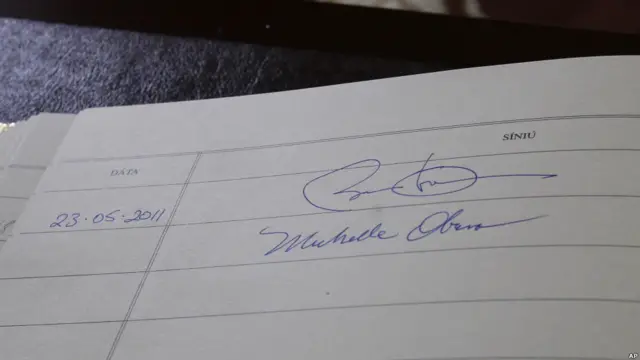 DÁTA SÍNIÚ
23·05·2011
Michelle Obama
AP